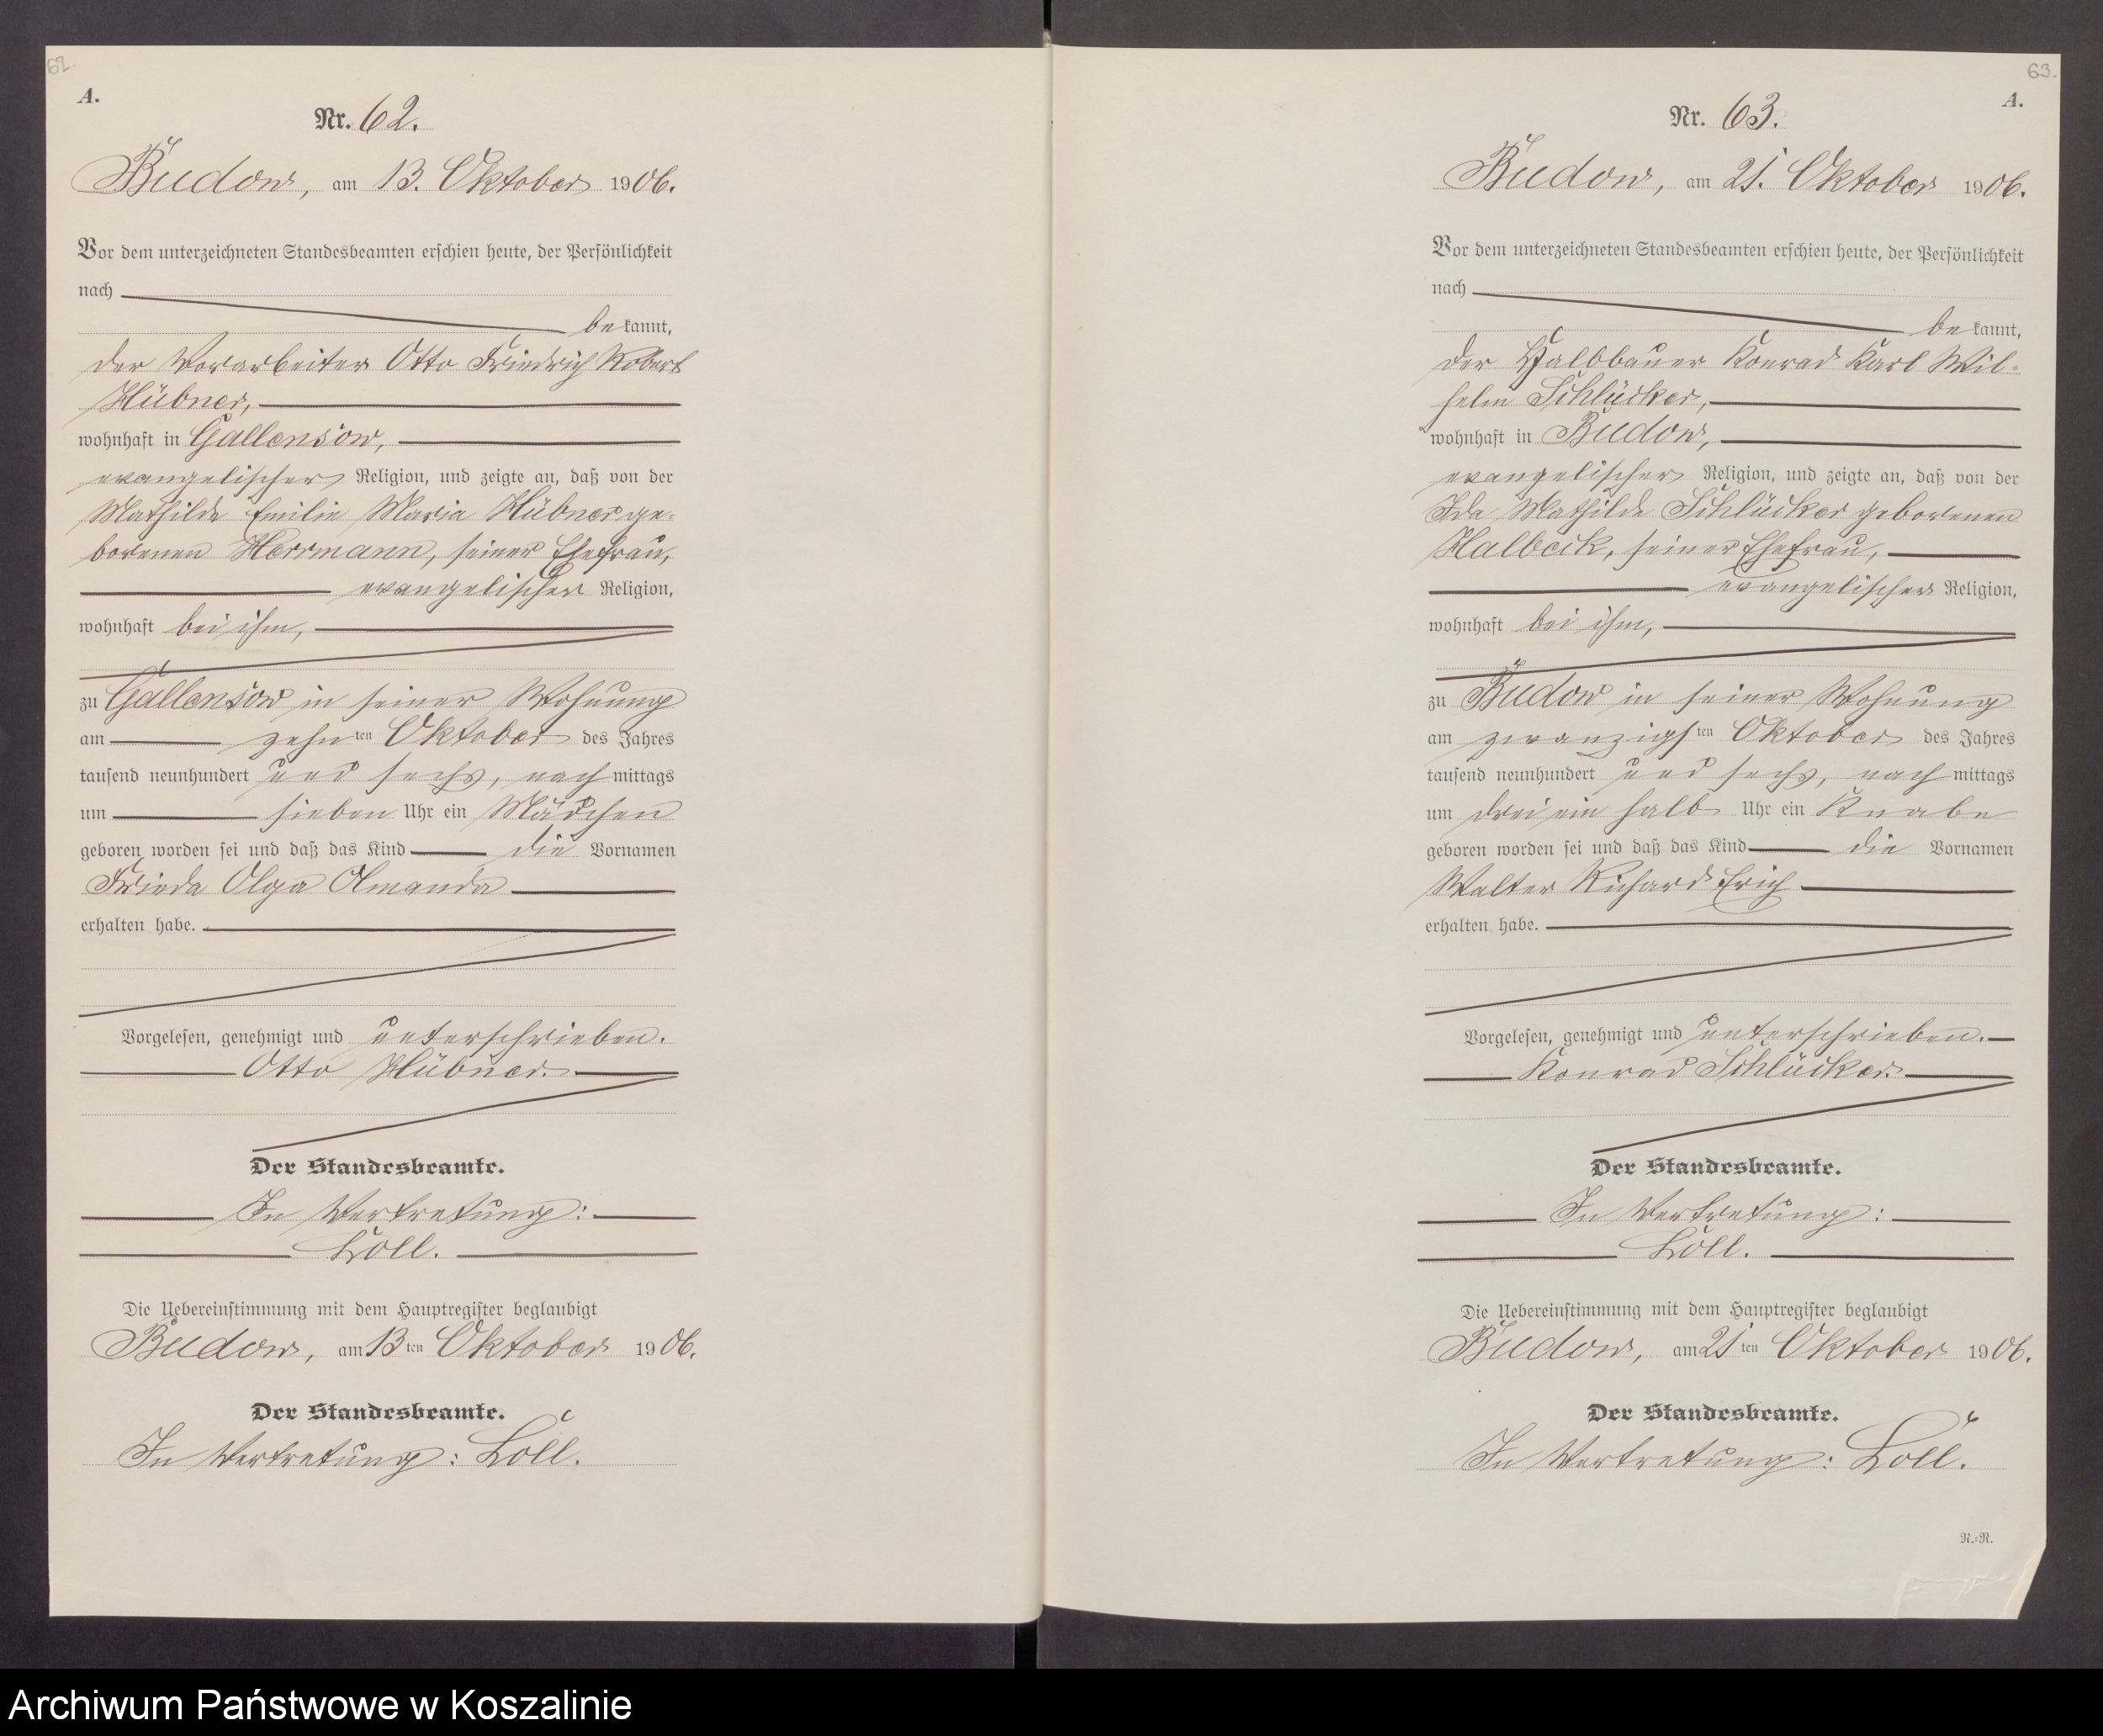 62.
A.
Nr. 62.
Budow, am 13. Oktober 1906.
Vor dem unterzeichneten Standesbeamten erschien heute, der Persönlichkeit
nach
be kannt,
der Vorarbeiter Otto Friedrich Robert
Hübner,
wohnhaft in Gallensow,
evangelischer Religion, und zeigte an, daß von der
Mathilde Emilie Maria Hübner ge-
borenen Herrmann, seiner Ehefrau,
evangelischer Religion,
wohnhaft bei ihm,
zu Gallensow in seiner Wohnung
am zehn ten Oktober des Jahres
tausend neunhundert und sechs, nach mittags
um sieben Uhr ein Mädchen
geboren worden sei und daß das Kind die Vornamen
Frieda Olga Almanda
erhalten habe.
Vorgelesen, genehmigt und unterschrieben.
Otto Hübner.
Der Standesbeamte.
In Vertretung:
Loll.
Die Uebereinstimmung mit dem Hauptregister beglaubigt
Budow, am 13 ten Oktober 1906.
Der Standesbeamte.
In Vertretung: Loll.
63.
A.
Nr. 63.
Budow, am 21. Oktober 1906.
Vor dem unterzeichneten Standesbeamten erschien heute, der Persönlichkeit
nach
be kannt,
der Halbbauer Konrad Karl Wil-
helm Schlücker,
wohnhaft in Budow,
evangelischer Religion, und zeigte an, daß von der
Ida Mathilde Schlücker geborenen
Halbeck, seiner Ehefrau,
evangelischer Religion,
wohnhaft bei ihm,
zu Budow in seiner Wohnung
am zwanzigs ten Oktober des Jahres
tausend neunhundert und sechs, nach mittags
um drei ein halb Uhr ein Knabe
geboren worden sei und daß das Kind die Vornamen
Walter Richard Erich
erhalten habe.
Vorgelesen, genehmigt und unterschrieben.
Konrad Schlücker.
Der Standesbeamte.
In Vertretung:
Loll.
Die Uebereinstimmung mit dem Hauptregister beglaubigt
Budow, am 21 ten Oktober 1906.
Der Standesbeamte.
In Vertretung: Loll.
R.=R.
Archiwum Państwowe w Koszalinie